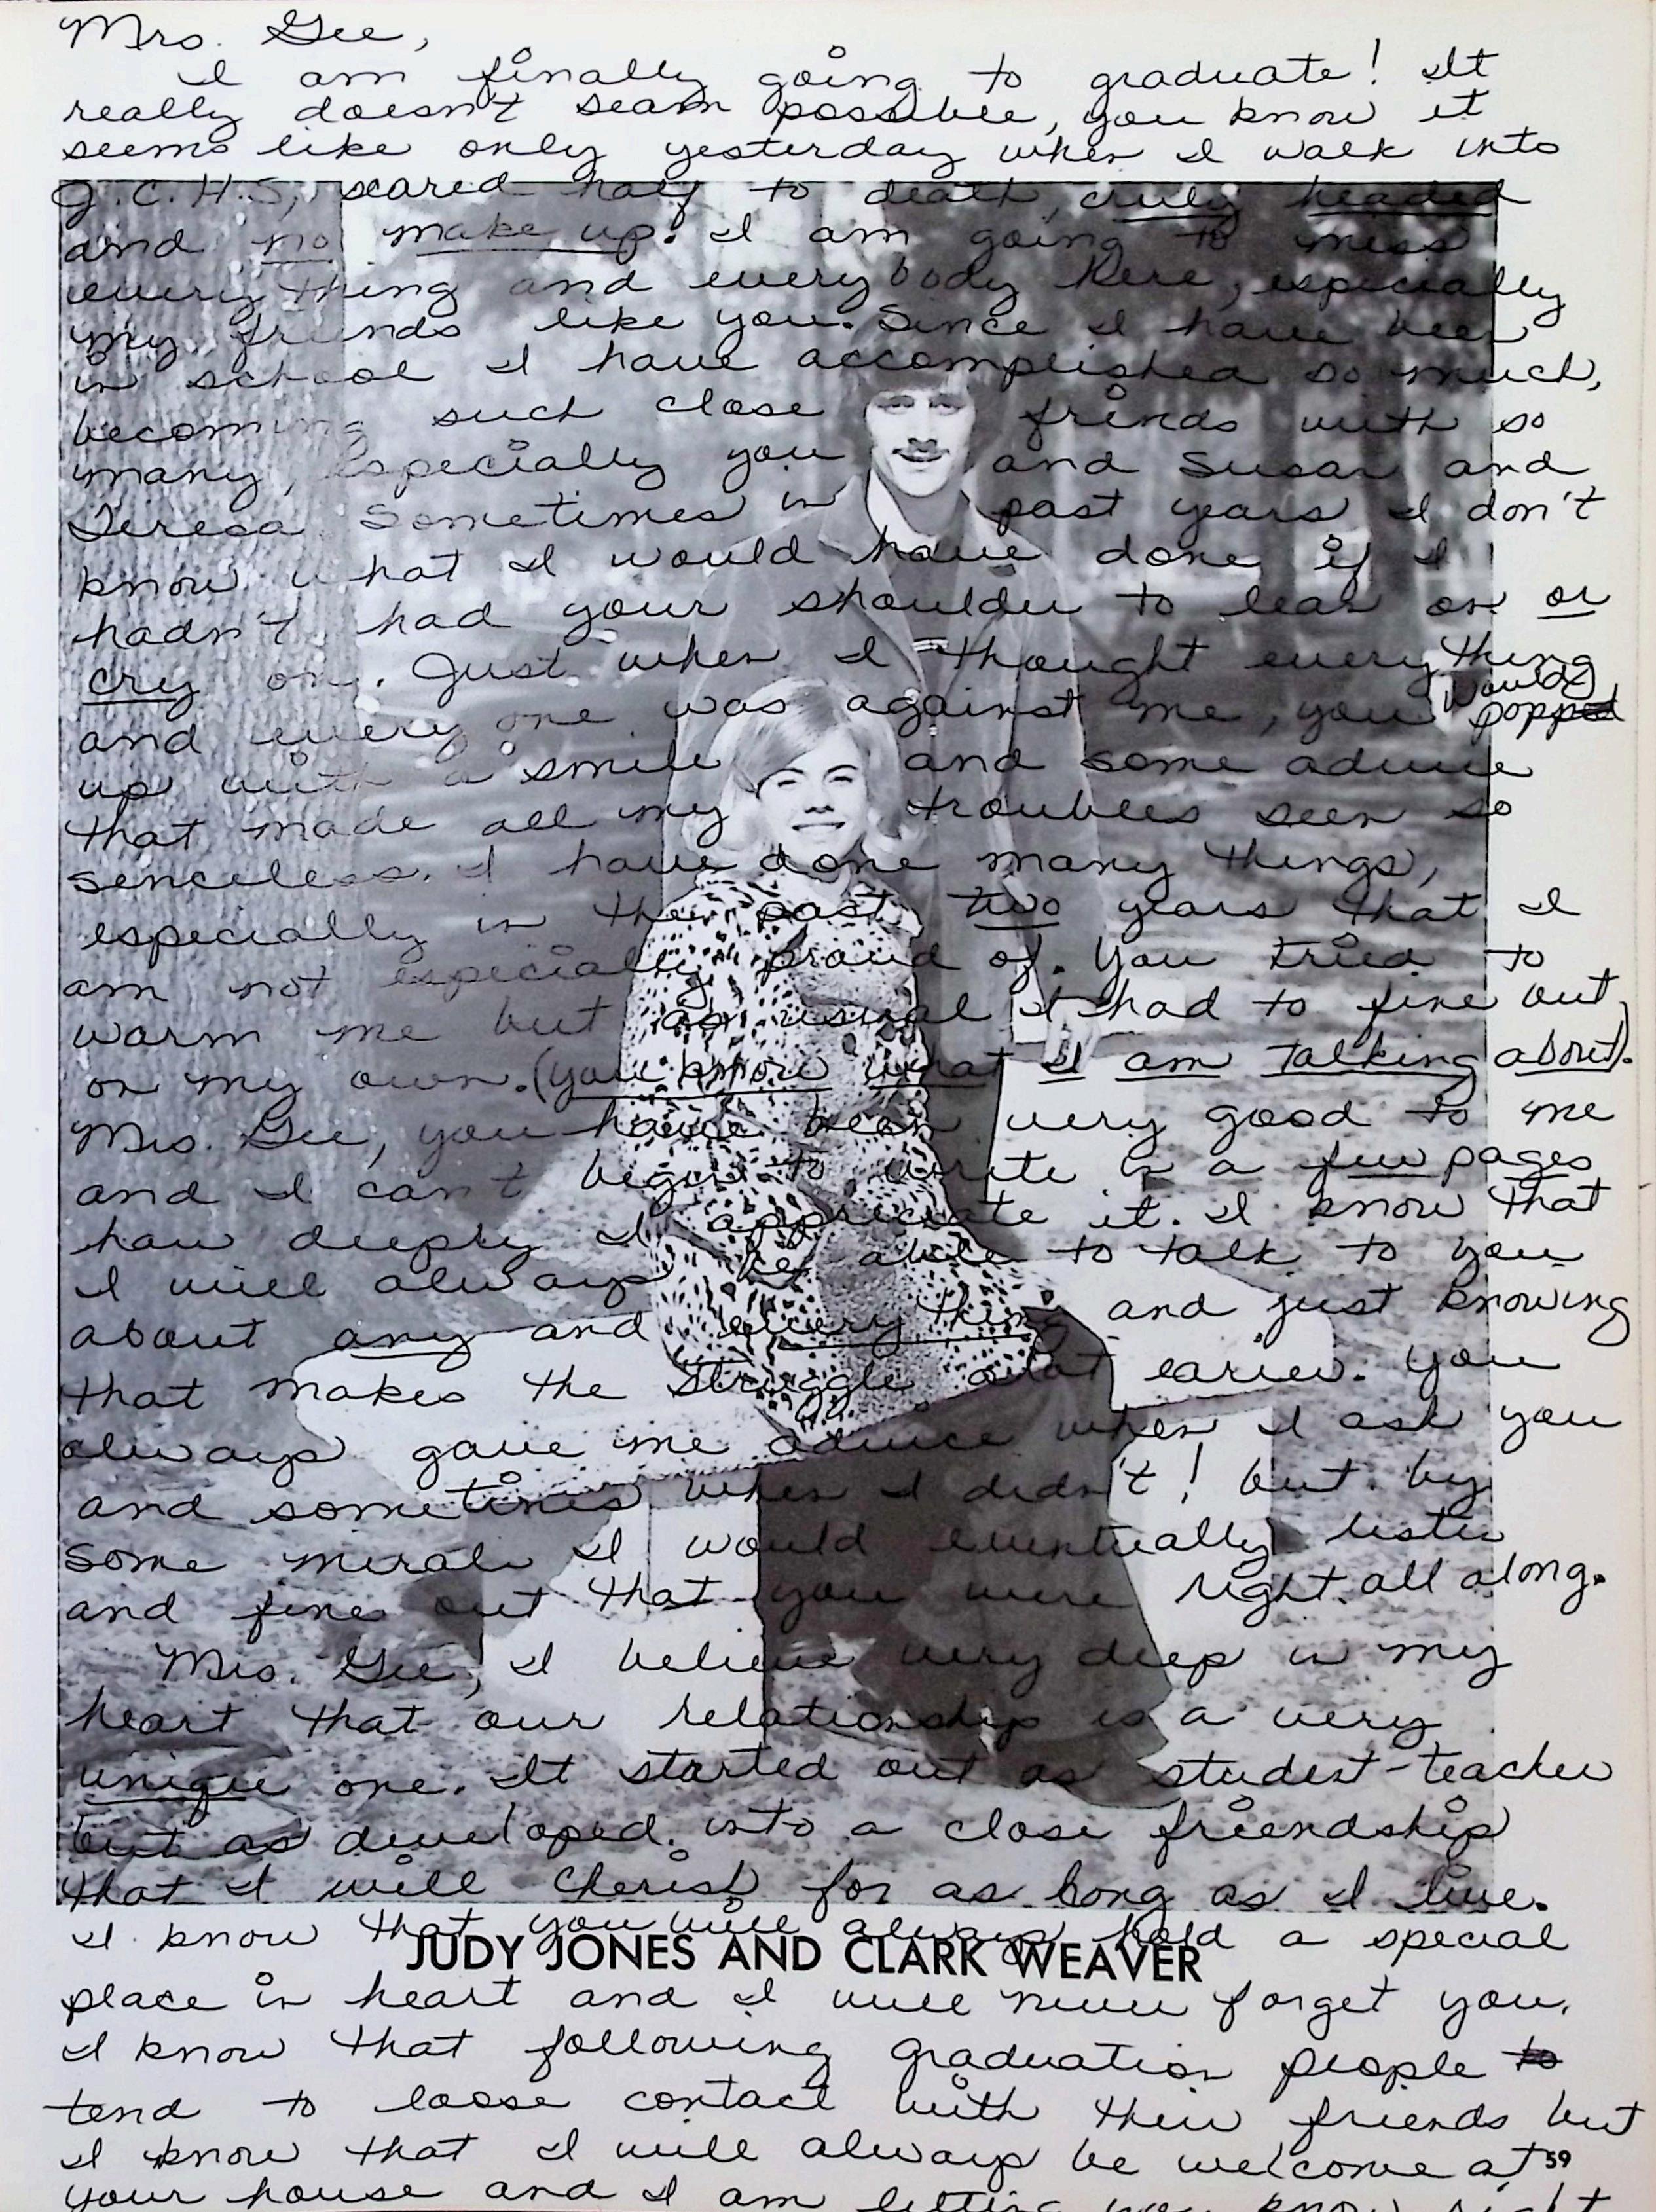 Mrs. Gee,
I am finally going to graduate! It
really doesn't seam possible, you know it
seems like only yesterday when I walk into
J.C.H.S, scared half to death, cruly headed
and no make up. I am going to miss
everything and everybody here, especially
my friends like you. Since I have been
in school I have accomplished so much,
becoming such close frinds with so
many, especially you and Susan and
Teresa. Sometimes in past years I don't
know what I would have done if I
hadn't had your shoulder to lean on or
cry on. Just when I thought every thing
and every one was against me, you would popped
up with a smile and some advice
that made all my troubles seen so
senceless. I have done many things,
especially in the past two years that I
am not especially proud of. You tried to
warm me but as usual I had to fine out
on my own. (you know what I am talking about).
Mrs. Gee, you have been very good to me
and I can't began to write in a few pages
how deeply I appreciate it. I know that
I will always be able to talk to you
about any and every thing and just knowing
that makes the struggle alot easier. You
always gave me advice when I ask you
and sometimes when I didn't! but by
some miracle I would eventually listen
and fine out that you were right all along.
Mrs. Gee, I believe very deep in my
heart that our relationship is a very
unique one. It started out as student-teacher
but as developed into a close friendship
that I will cherish for as long as I live.
I know that you will always hold a special
JUDY JONES AND CLARK WEAVER
place in heart and I will never forget you.
I know that following graduation people to
tend to loose contact with their friends but
I know that I will always be welcome at
59
your house and I am letting you know right